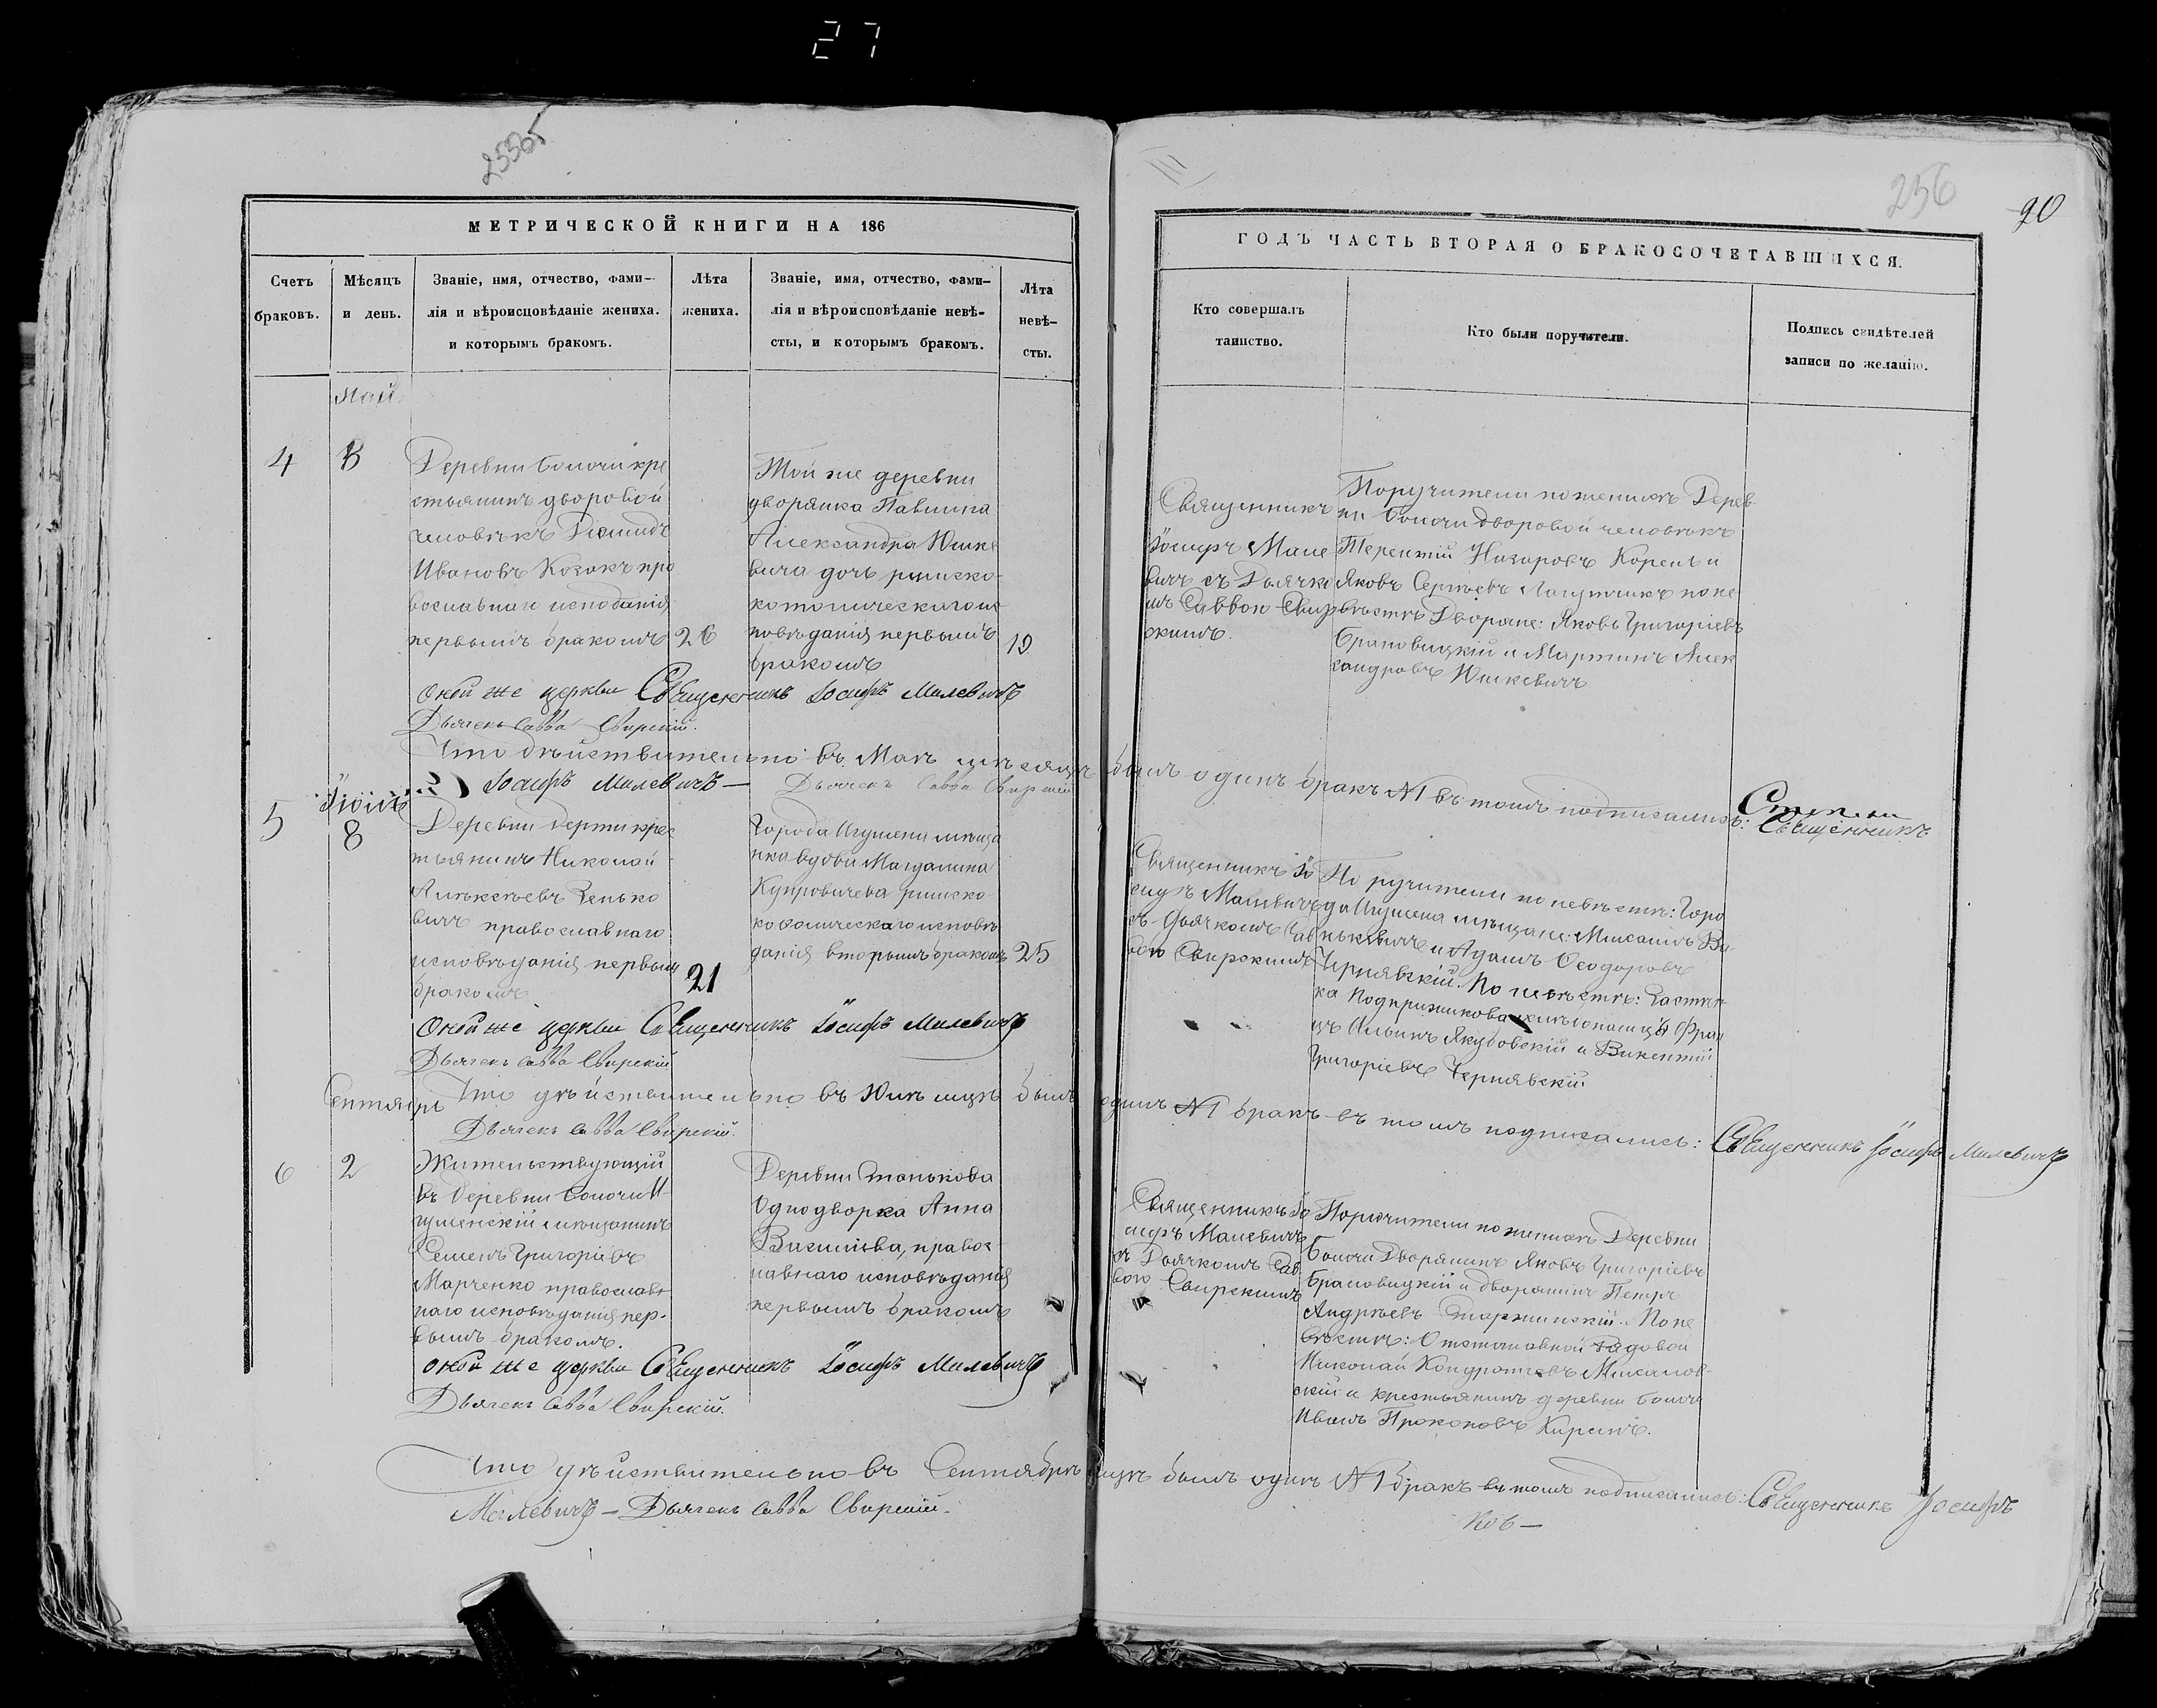 27
255об
256
90
МЕТРИЧЕСКОЙ КНИГИ НА 186
Счетъ
браковъ.
Мѣсяцъ
и день.
Званіе, имя, отчество, фами-
лія и вѣроисповѣданіе жениха.
и которымъ бракомъ.
Лѣта
жениха.
Званіе, имя, отчество, фами-
лія и вѣроисповѣданіе невѣ-
сты, и которымъ бракомъ.
Лѣта
невѣ-
сты.
ГОДЪ ЧАСТЬ ВТОРАЯ О БРАКОСОЧЕТАВШИХСЯ.
Кто совершалъ
таинство.
Кто были поручители.
Подпись свидѣтелей
записи по желанію.
Май
4
Деревни Болочи кре
стьянинъ дворовой
человѣкъ
Ивановъ Козакъ пра
вославнаго исповданія
первымъ бракомъ
26
Той же деревни
дворянка Павлина
Александра Юшке
вича дочь римско-
католическаго ис
повѣданія первымъ
бракомъ
19
Священникъ
Іосифъ Мале
вичъ съ Дьячко
мъ Саввою Свир
скимъ.
Поручители по женихѣ Дерев
ни Болочи дворовой человѣкъ
Терентій Назаровъ Корень и
Яковъ Сергѣевъ по не
вѣстѣ Дворяне: Яковъ Григоріевъ
Брановицкій и Мартинъ Алек
сандровъ Юшкевичъ
Оной же церкви Священникъ Іосифъ Малевичъ
Дьячекъ Савва Свирскій.
Что дѣйствительно въ Маѣ мѣсяцѣ былъ одинъ бракъ №1 въ томъ подписались: Священникъ
Іосифъ Малевичъ — Дьячекъ Савва Свирскій
Іюнь
5
8
Деревни Дерти крес
тьянинъ Николай
Алексѣевъ Зенько
вичъ православнаго
исповѣданія первым
бракомъ
21
Города Игумена мѣща
нка вдова Магдалина
Купровичева римско
католическаго исповѣ
данія вторымъ бракомъ
25
Священникъ Іо
сифъ Малевичъ
съ Дьячкомъ Сав
вою Свирскимъ
По ручители по невѣстѣ: Горо
да Игумена мѣщане: Михаилъ Ва
нькевичъ и Адамъ Ѳеодоровъ
Чернявскій. По невѣстѣ: Застѣн
ка Фран
цъ Ильинъ Якубовскій и Викентій
Григоріевъ Чернявскій
Оной же церкви Священникъ Іосифъ Малевичъ
Дьячекъ Савва Свирскій
Что дѣйствительно въ Юнѣ мцѣ былъ одинъ №1 бракъ въ томъ подписались: Священникъ Іосифъ Малевичъ
Дьячекъ Савва Свирскій.
Сентябрь
6
2
Жительствующій
въ Деревни Болочи И
гуменскій мѣщанинъ
Семенъ Григоріевъ
Марченко православ
наго исповѣданія пер-
вымъ бракомъ.
Деревни Станькова
Однодворка Анна
Василіева, правос
лавнаго исповѣданія
первымъ бракомъ
Священникъ Іо
сифъ Малевичъ
съ Дьячкомъ Сав
вою Свирскимъ
Поручители по женихѣ Деревни
Болочи Дворянинъ Яковъ Григоріевъ
Брановицкій и дворянинъ Петръ
Андрѣевъ По не
вѣстѣ: Отставной Рядовой
Николай Кондратіевъ
скій и крестьянинъ деревни Болочи
Иванъ Прокоповъ
Оной же церкви Священникъ Іосифъ Малевичъ
Дьячекъ Савва Свирскій.
Что дѣйствительно въ Сентябрѣ мцѣ былъ одинъ №1 бракъ въ томъ подписались: Священникъ Іосифъ
Малевичъ — Дьячекъ Савва Свирскій.